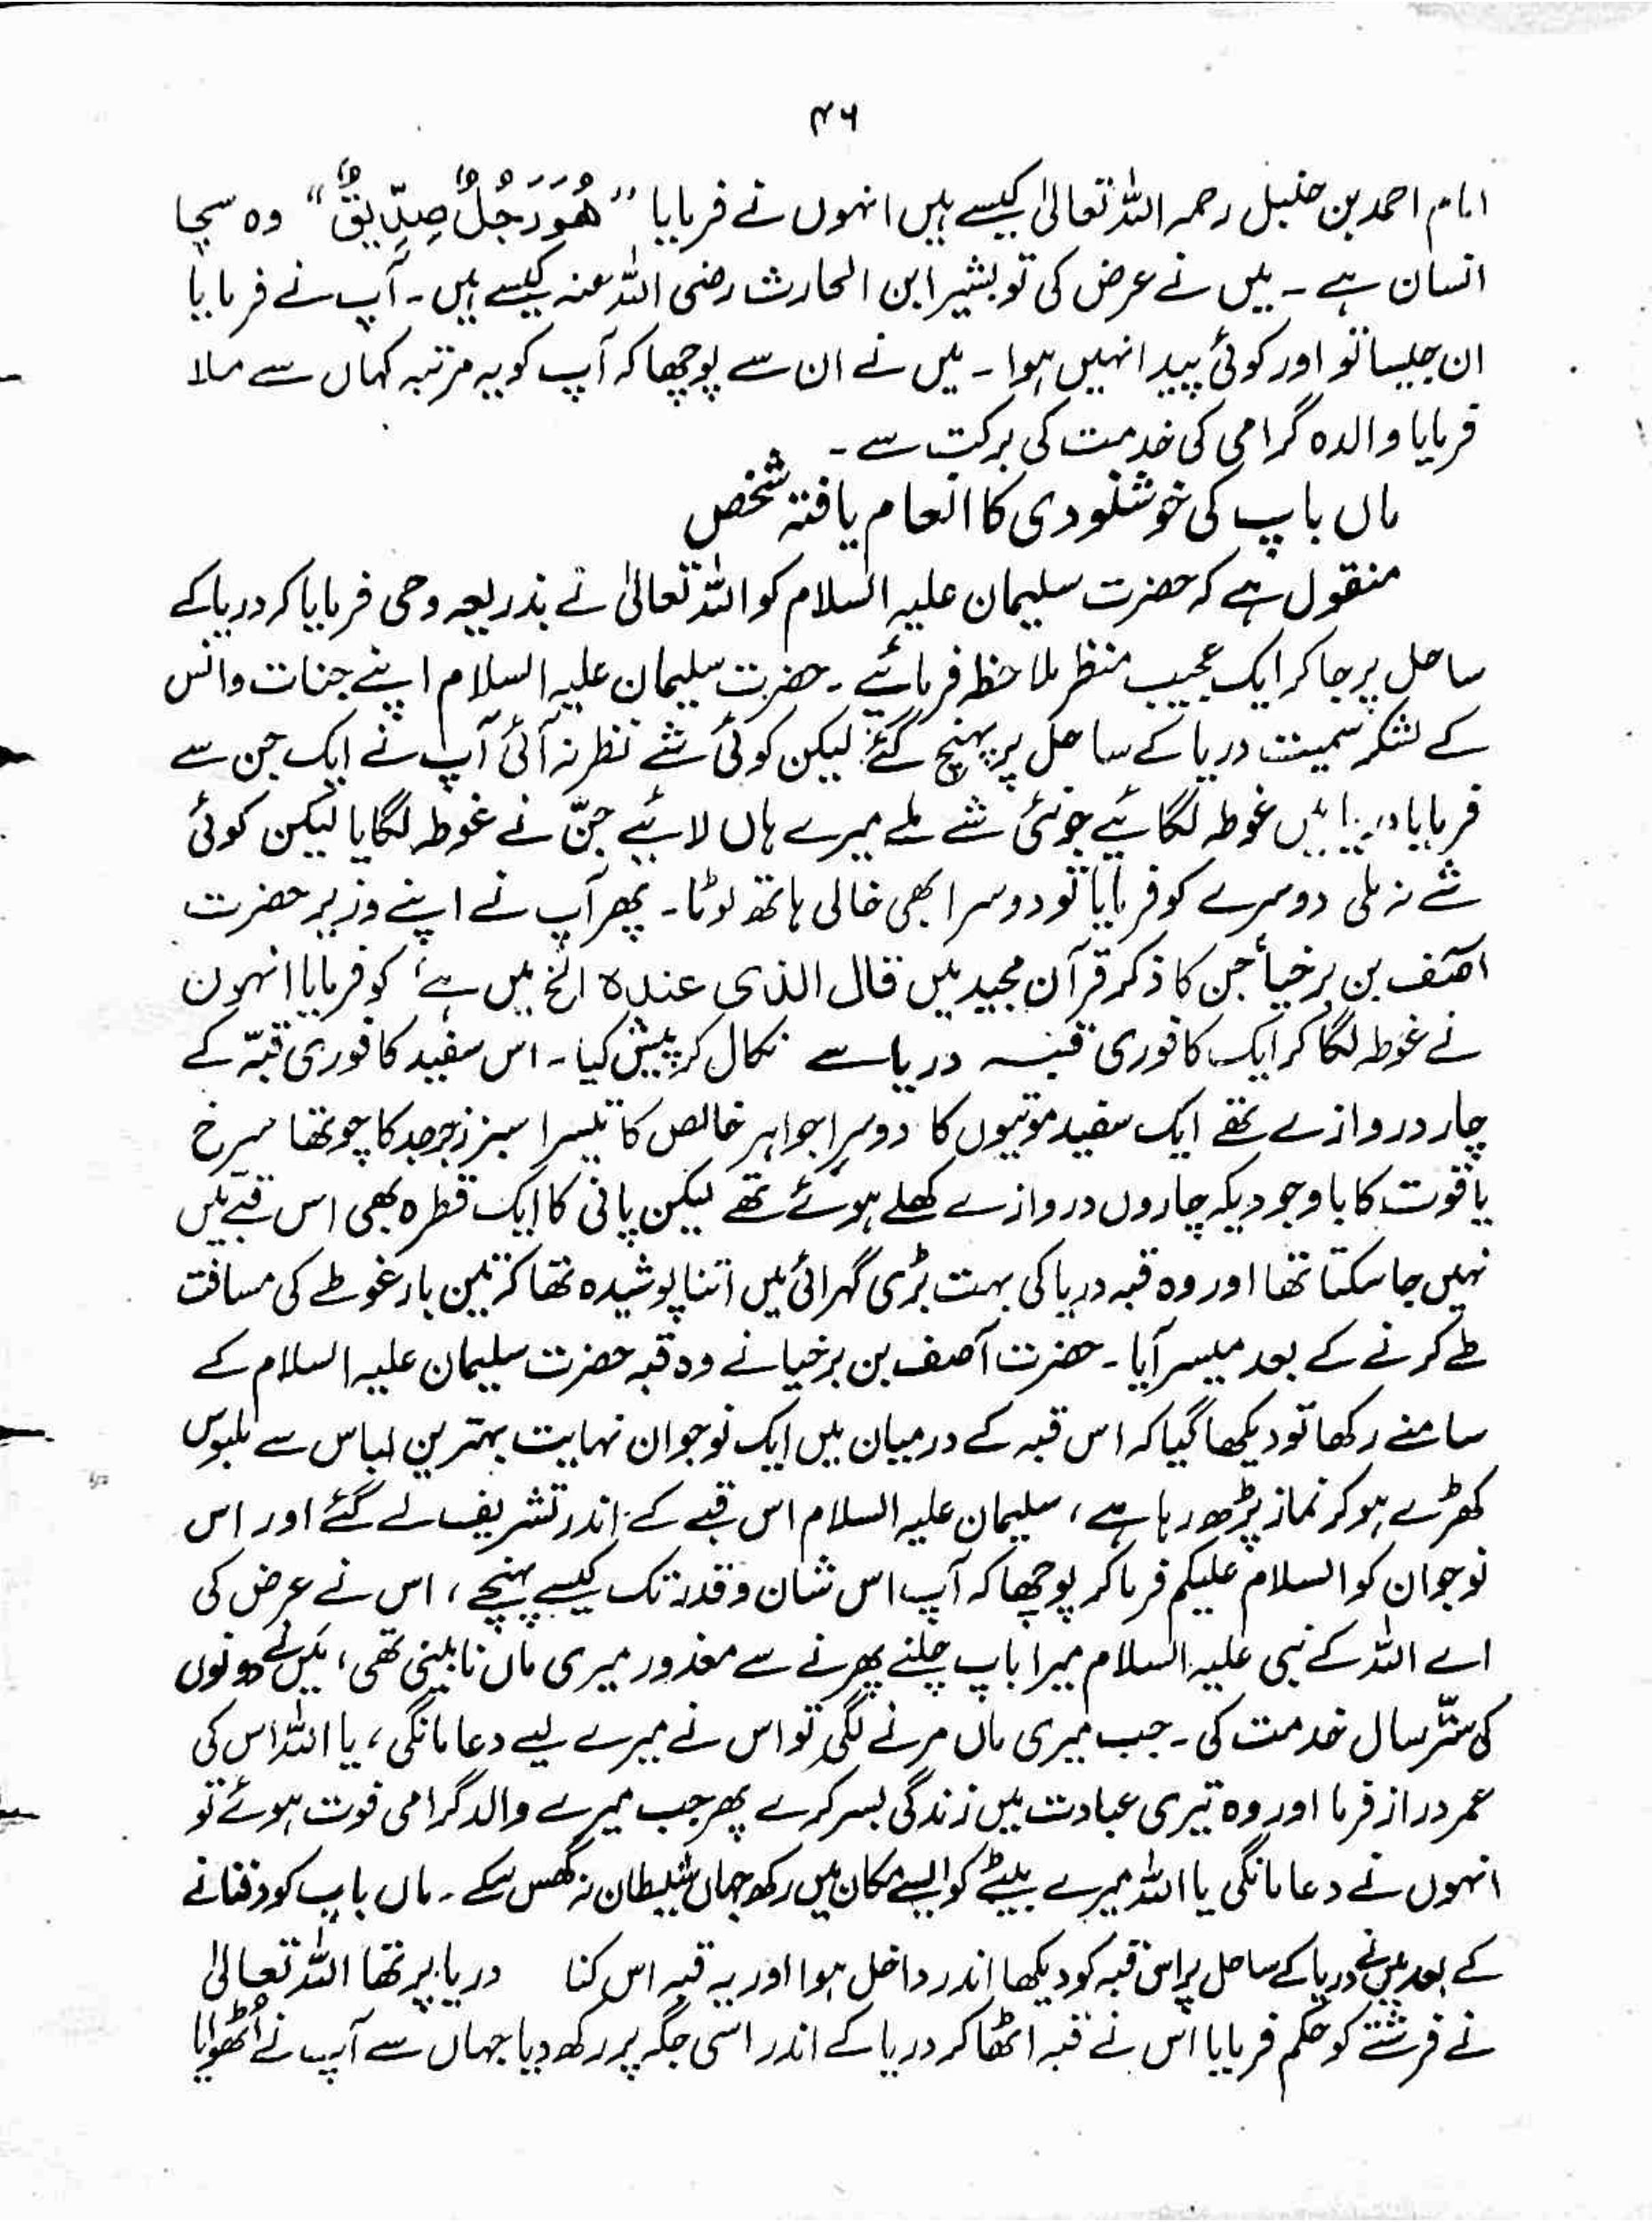 ۴۶
امام احمد بن حنبل رحمہ اللہ تعالیٰ کیسے ہیں انہوں نے فرمایا "ھُوَ رَجُلٌ صِدِّیقٌ" وہ سچا
انسان ہے ۔ میں نے عرض کی تو بشیر ابن الحارث رضی اللہ عنہ کیسے ہیں ۔ آپ نے فرمایا
ان جیسا تو اور کوئی پیدا نہیں ہوا ۔ میں نے ان سے پوچھا کہ آپ کو یہ مرتبہ کہاں سے ملا
فرمایا والدہ گرامی کی خدمت کی برکت سے ۔
ماں باپ کی خوشنودی کا انعام یافتہ شخص
منقول ہے کہ حضرت سلیمان علیہ السلام کو اللہ تعالیٰ نے بذریعہ وحی فرمایا کہ دریا کے
ساحل پر جا کر ایک عجیب منظر ملاحظہ فرمائیے ۔ حضرت سلیمان علیہ السلام اپنے جنات وانس
کے لشکر سمیت دریا کے ساحل پر پہنچ گئے لیکن کوئی شے نظر نہ آئی آپ نے ایک جن سے
فرمایا دریا میں غوطہ لگائیے جونئی شے ملے میرے ہاں لائیے جنّ نے غوطہ لگایا لیکن کوئی
شے نہ ملی دوسرے کو فرمایا تو دوسرا بھی خالی ہاتھ لوٹا ۔ پھر آپ نے اپنے وزیر حضرت
آصف بن برخیا جن کا ذکر قرآن مجید میں قال الذی عندہ الخ میں ہے، کو فرمایا انہوں
نے غوطہ لگا کر ایک کافوری قبہ دریا سے نکال کر پیش کیا ۔ اس سفید کافوری قبّہ کے
چار دروازے تھے ایک سفید موتیوں کا دوسرا جواہر خالص کا تیسرا سبز زبرجد کا چوتھا سرخ
یاقوت کا باوجودیکہ چاروں دروازے کھلے ہوئے تھے لیکن پانی کا ایک قطرہ بھی اس قبے میں
نہیں جا سکتا تھا اور وہ قبہ دریا کی بہت بڑی گہرائی میں اتنا پوشیدہ تھا کہ تین بار غوطے کی مسافت
طے کرنے کے بعد میسر آیا ۔ حضرت آصف بن برخیا نے وہ قبہ حضرت سلیمان علیہ السلام کے
سامنے رکھا تو دیکھا گیا کہ اس قبہ کے درمیان میں ایک نوجوان نہایت بہترین لباس سے ملبوس
کھڑے ہو کر نماز پڑھ رہا ہے، سلیمان علیہ السلام اس قبے کے اندر تشریف لے گئے اور اس
نوجوان کو السلام علیکم فرما کر پوچھا کہ آپ اس شان و قدر تک کیسے پہنچے، اس نے عرض کی
اے اللہ کے نبی علیہ السلام میرا باپ چلنے پھرنے سے معذور میری ماں نابینی تھی، میں نے دونوں
کی ستّر سال خدمت کی ۔ جب میری ماں مرنے لگی تو اس نے میرے لیے دعا مانگی، یا اللہ اس کی
عمر دراز فرما اور وہ تیری عبادت میں زندگی بسر کرے پھر جب میرے والد گرامی فوت ہوئے تو
انہوں نے دعا مانگی یا اللہ میرے بیٹے کو ایسے مکان میں رکھ جہاں شیطان نہ گھس سکے ۔ ماں باپ کو دفنانے
کے بعد میں نے دریا کے ساحل پر اس قبہ کو دیکھا اندر داخل ہوا اور یہ قبہ اس کنا دریا پر تھا اللہ تعالیٰ
نے فرشتے کو حکم فرمایا اس نے قبہ اٹھا کر دریا کے اندر اسی جگہ پر رکھ دیا جہاں سے آپ نے اُٹھوایا